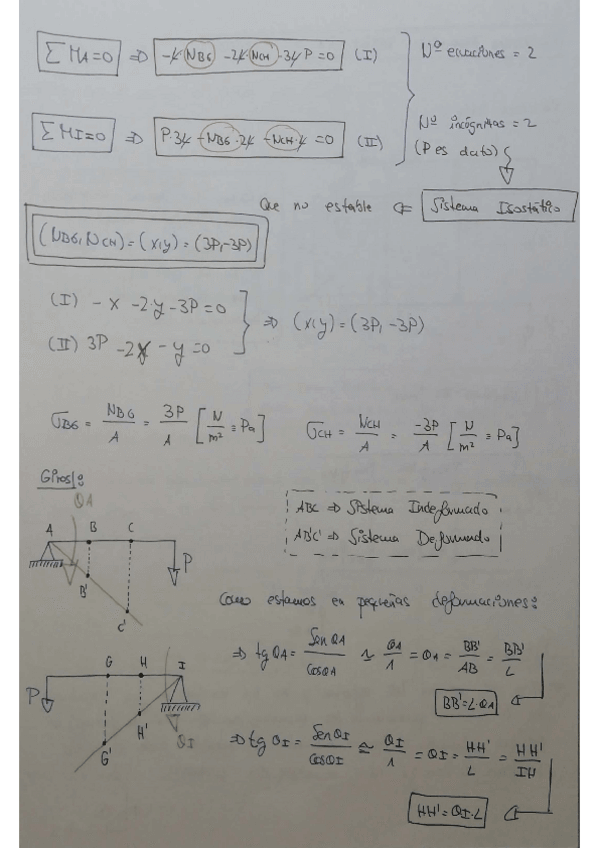 ΣMA=0 ⇒ -L·NBG -2L·NCH -3L·P =0 (I)
Nº ecuaciones = 2
ΣMI=0 ⇒ P·3L -NBG·2L -NCH·L =0 (II)
Nº incógnitas = 2
(P es dato)
Que no estable ⇐ Sistema Isostático
(NBG, NCH) = (x,y) = (3P,-3P)
(I) -x -2·y -3P=0
(II) 3P -2x -y =0
⇒ (x,y) = (3P, -3P)
σBG = NBG/A = 3P/A [N/m² ≡ Pa]
σCH = NCH/A = -3P/A [N/m² ≡ Pa]
Giros:
θA
ABC ⇒ Sistema Indeformado
AB'C' ⇒ Sistema Deformado
A B C
P
B'
C'
Como estamos en pequeñas deformaciones:
⇒ tg θA = Sen θA/Cos θA ≃ θA/1 = θA = BB'/AB = BB'/L
BB'=L·θA
G H I
P
H'
G'
θI
⇒ tg θI = Sen θI/Cos θI ≅ θI/1 = θI = HH'/L = HH'/IH
HH'=θI·L